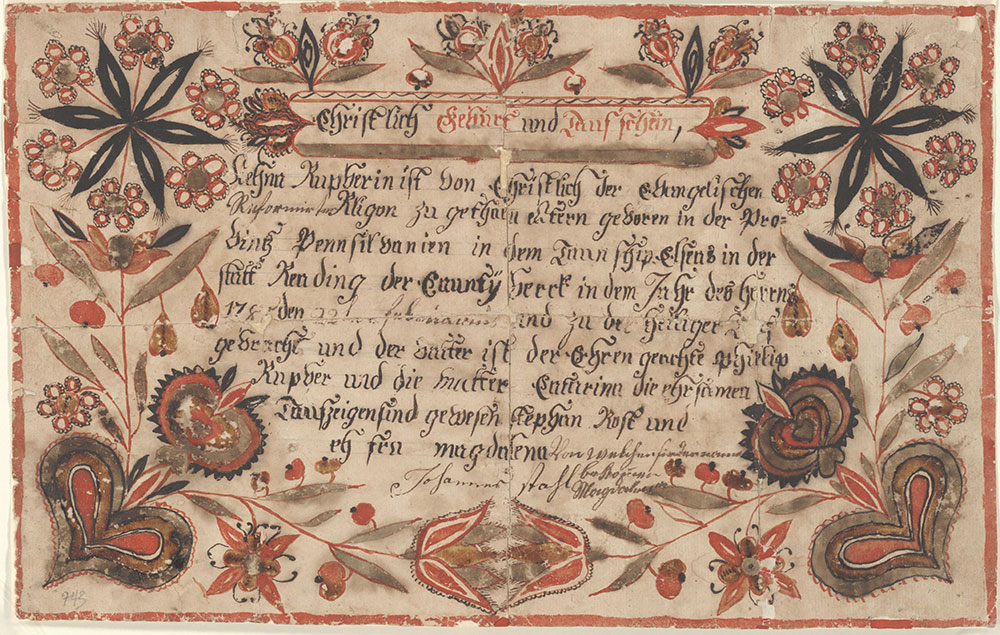 Christlich Geburt und Taufschein,
Rupberin ist von Christlich der Evangelischen
Religon zu gethan eltern geboren in der Pro-
vintz Pennsilvanien in dem Taunschip Elsens in der
statt Reading der Caunty berck in dem Jahr des herrns
den und zu der heiliger
gebracht und der vatter ist der Ehren geachte Philip
Rupber und die mutter Catarina die ehrsamen
Taufzeigen sind gewesen stephan Rost und
magdalena Von welcher
Johannes stahl
Magdalena
943